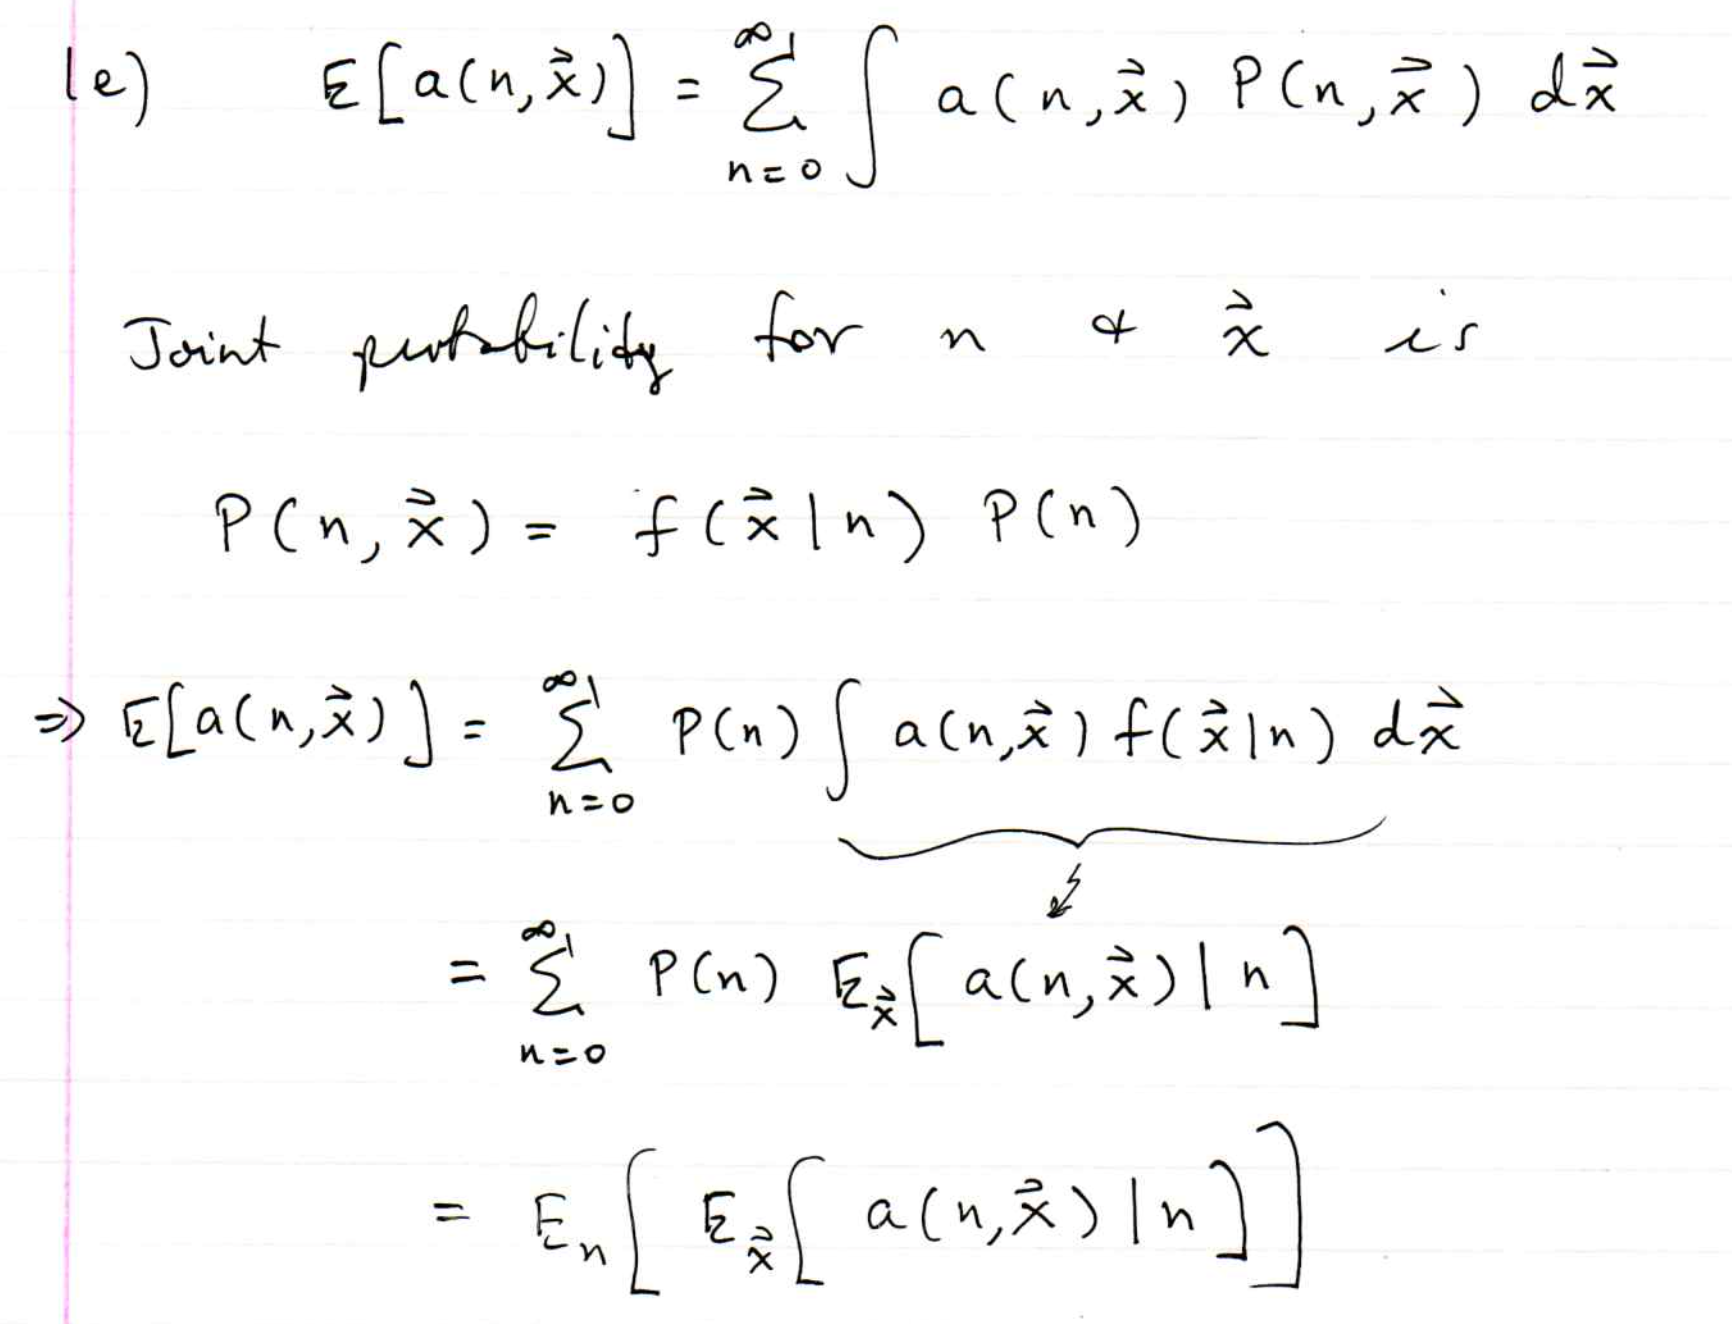 1e) E[a(n,x⃗)] = ∑_{n=0}^{∞} ∫ a(n,x⃗) P(n,x⃗) dx⃗
Joint probability for n & x⃗ is
P(n,x⃗) = f(x⃗|n) P(n)
⇒ E[a(n,x⃗)] = ∑_{n=0}^{∞} P(n) ∫ a(n,x⃗) f(x⃗|n) dx⃗
= ∑_{n=0}^{∞} P(n) E_x⃗[a(n,x⃗)|n]
= E_n[E_x⃗[a(n,x⃗)|n]]